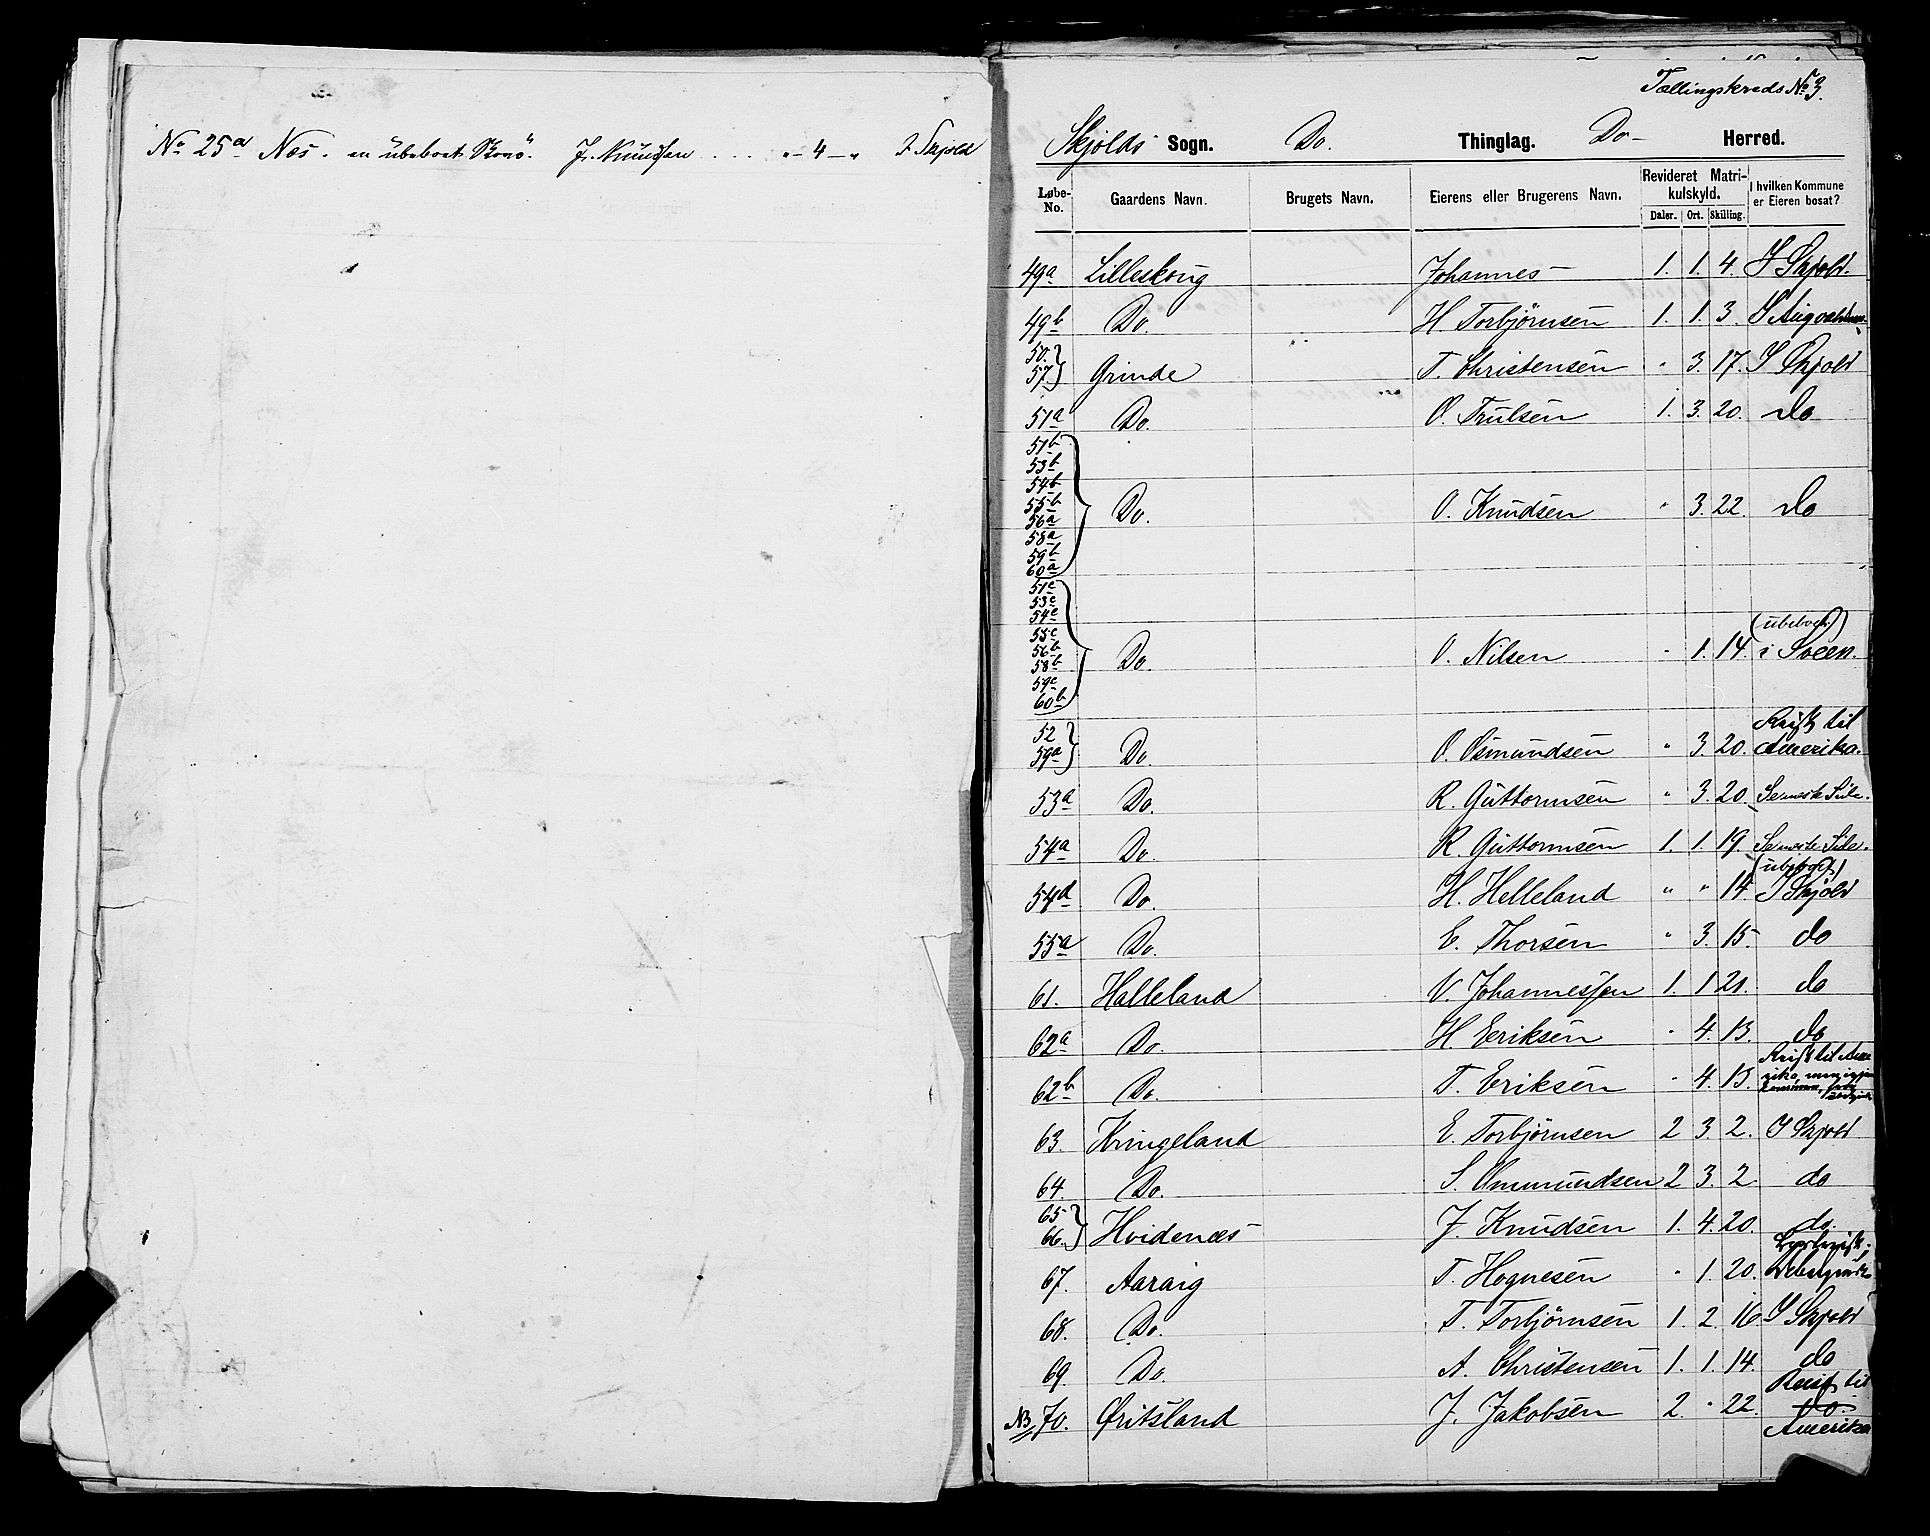 No 25a Næs. en ubeboet J. Knudsen . . . . "- 4 -" I Skjold
Tællingskreds No 3.
Skjolds Sogn. Do. Thinglag. Do- Herred.
Løbe-No. Gaardens Navn. Brugets Navn. Eierens eller Brugerens Navn. Revideret Matrikulskyld. Daler. Ort. Skilling. I hvilken Kommune er Eieren bosat?
49a Lilleskoug Johannes- 1. 1. 4. I Skjold.
49b Do. H Torbjörnsen 1. 1. 3. I
50. 57 } Grinde T. Christensen " 3. 17. I Skjold
51a Do. O. Trulsen 1. 3. 20. do
51b 53b 54b 55b 56a 58a 59b 60a } Do. O. Knudsen " 3. 22. do
51c 53c 54c 55c 56b 58b 59c 60b } Do. O. Nilsen " 1. 14. (ubeboet) i Sveen.
52 59a } Do. O. Osmundsen " 3. 20. Reist til Amerika.
53a Do. R. Guttormsen " 3. 20. Se næste Side.
54a Do. R. Guttormsen 1. 1. 19. Se næste Side.
54d Do. H. Helleland " " 14. (ubeboet) I Skjold
55a Do. E. Thorsen " 3. 15. do
61. Halleland V. Johannessen 1. 1 21. do
62a Do. H. Eriksen " 4. 13. do
62b Do. T. Eriksen " 4. 13. Reist til Amerika,
63. Kringeland E. Torbjörnsen 2 3. 2. I Skjold
64. Do. S. Ommundsen 2 3. 2 do
65 66. } Hvidenæs J. Knudsen 1. 4. 20. do.
67. Aaraig T. Hognesen " 1. 20.
68. Do. T. Torbjörnsen 1. 2. 16 I Skjold
69. Do. A. Christensen 1. 1. 14. do
NB 70. Øritsland J. Jakobsen 2. " 22. Reist til do. Amerika